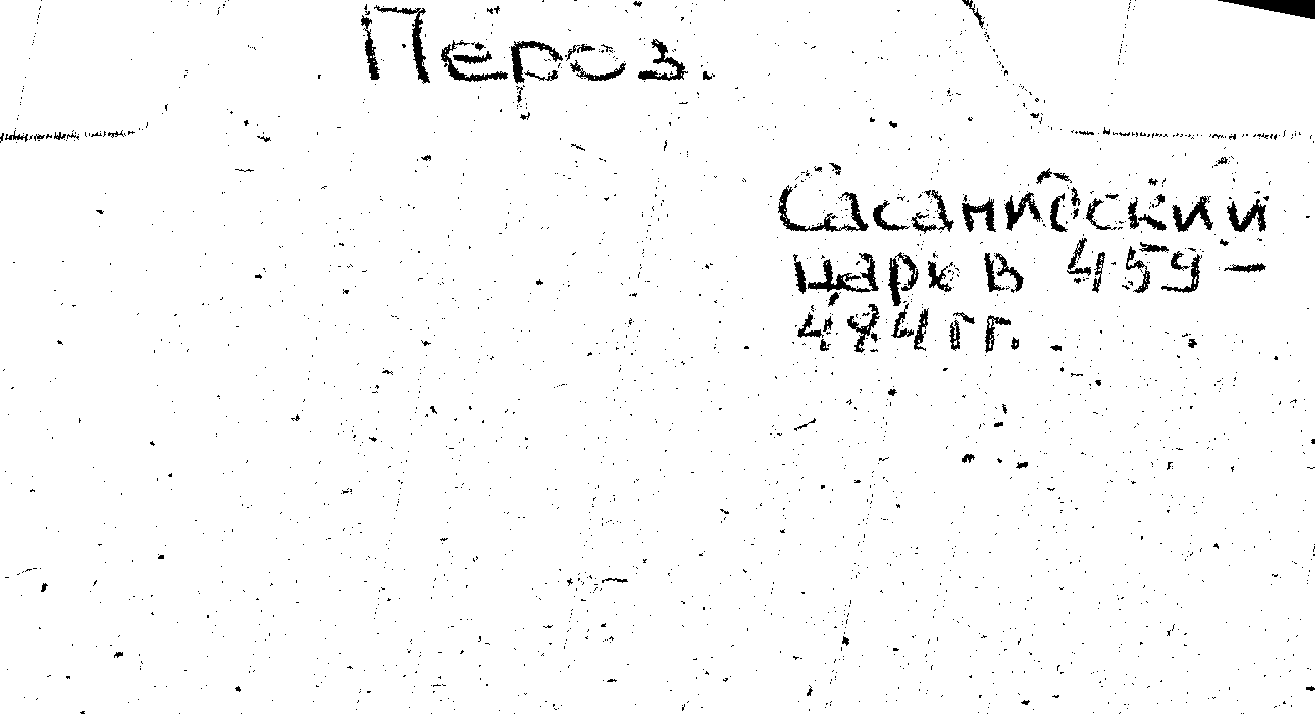 Пероз.
Сасанидский
царь в 459-
484 гг.